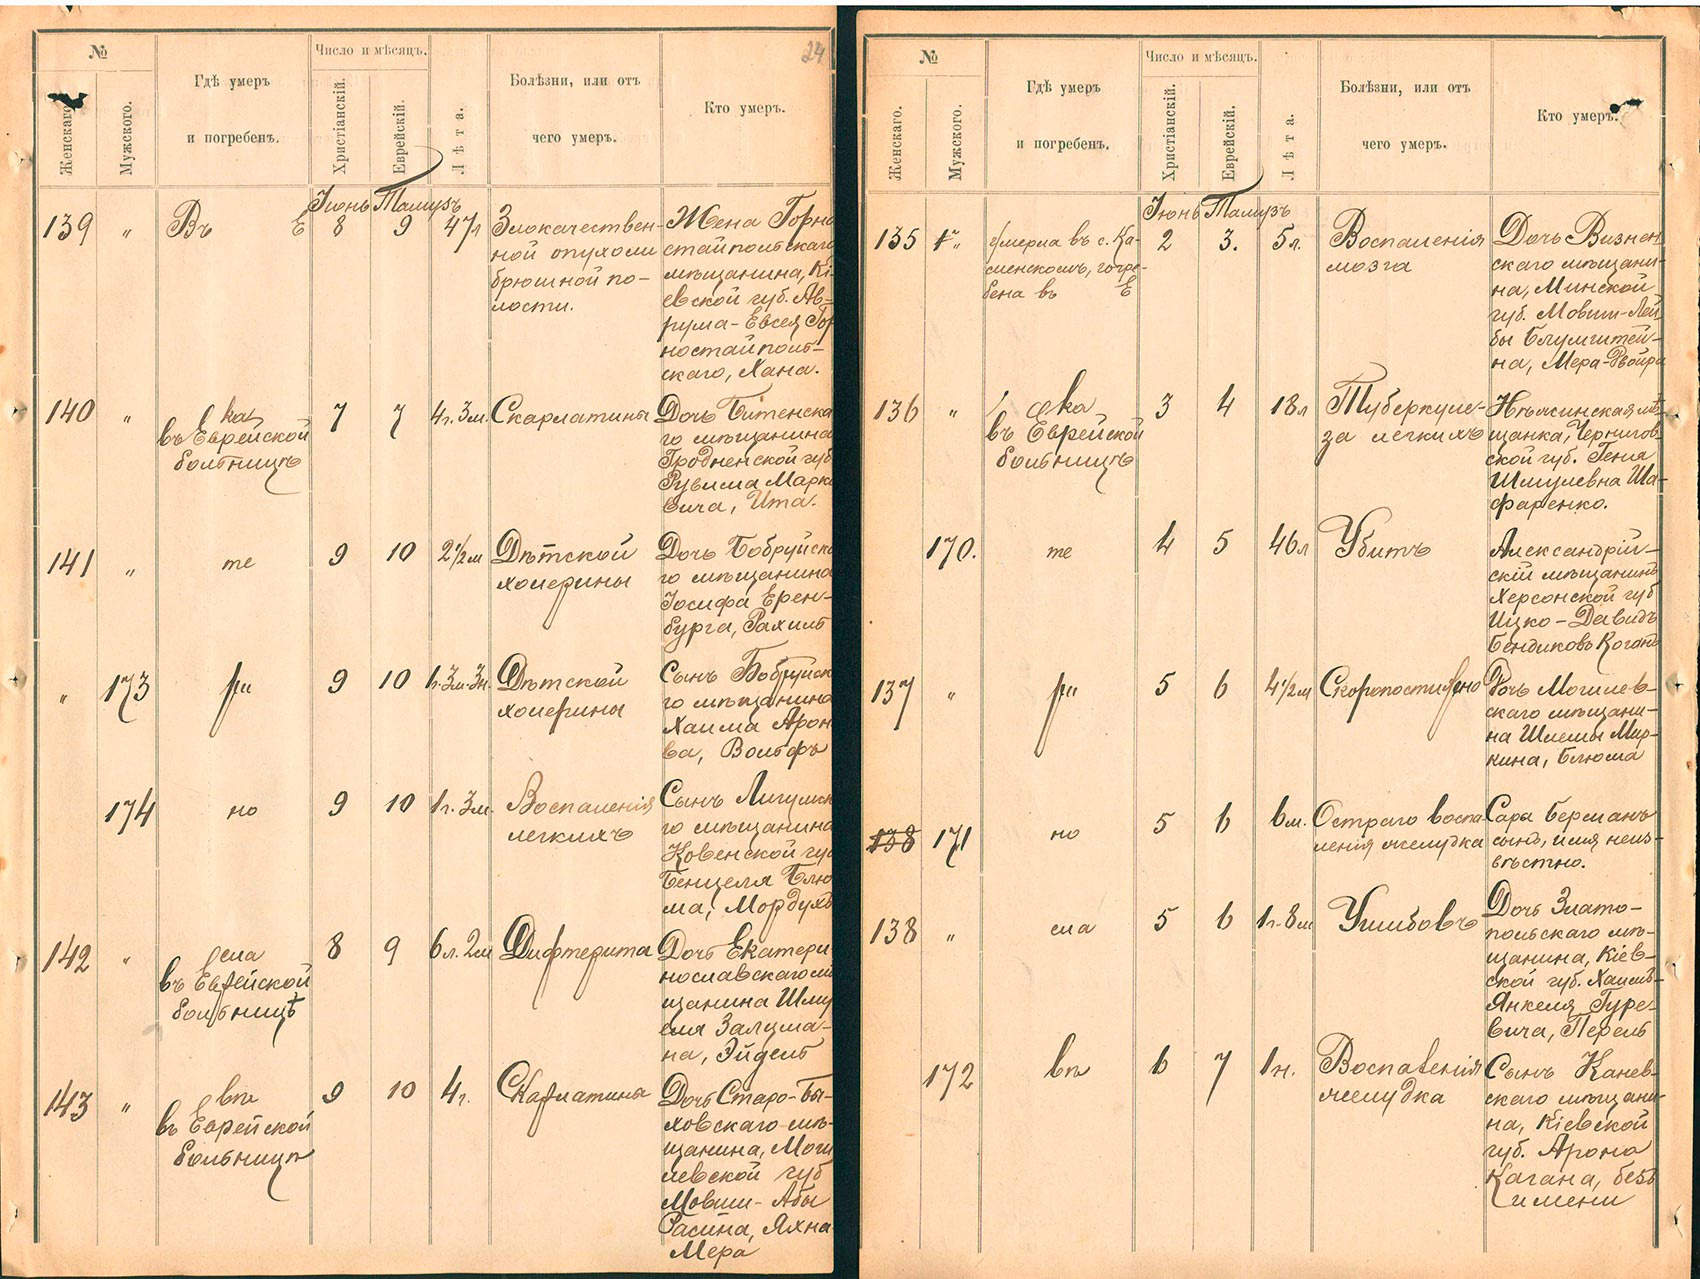 24
№
Число и мѣсяцъ.
Женскаго.
Мужского.
Гдѣ умеръ
и погребенъ.
Христіанскій.
Еврейскій.
Лѣта.
Болѣзни, или отъ
чего умеръ.
Кто умеръ.
Іюнь Тамузъ
139 „ Въ Е 8 9 47л
Злокачествен-
ной опухоли
брюшной по-
лости.
Жена Горно
стайпольскаго
мѣщанина, Кі-
евской губ. Ав-
рума-Евсея Гор
ностайполь-
скаго, Хана.
140 „
въ Еврейской
больницѣ
7 7 4г. 3м. Скарлатины
Дочь Битенска
го мѣщанина
Гродненской губ
Рувима Марко
вича, Ита.
141 „ те 9 10 2½м
Дѣтской
холерины
Дочь Бобруйска
го мѣщанина
Іосифа Ерен-
бурга, Рахиль
„ 173 ри 9 10 1г. 3м. 3н.
Дѣтской
холерины
Сынъ Бобруйска
го мѣщанина
Хаима Арон
ва, Вольфъ
174 но 9 10 1г. 3м.
Воспаленія
легкихъ
Сынъ
го мѣщанина
Ковенской губ
Бенцеля Блю
ма, Мордухъ
142 „ сла
въ Еврейской
больницѣ
8 9 6л. 2м Дифтерита
Дочь Екатери
нославскаго мѣ
щанина Шму
еля Залма-
на, Эйдель
143 „ въ
въ Еврейской
больницѣ
9 10 4г. Скарлатины
Дочь Старо-Бы-
ховскаго мѣ-
щанина, Моги
левской губ
Мовши-Абы
Расина, Яхна-
Мера
№
Число и мѣсяцъ.
Женскаго.
Мужского.
Гдѣ умеръ
и погребенъ.
Христіанскій.
Еврейскій.
Лѣта.
Болѣзни, или отъ
чего умеръ.
Кто умеръ.
Іюнь Тамузъ
135 „
умерла въ с. Ка-
менскомъ, погре-
бена въ Е
2 3. 5л.
Воспаленія
мозга
Дочь Визнен
скаго мѣщани-
на, Минской
губ. Мовши-Лей
бы Блумштей-
на, Мера-Двойра
136 „ ска
въ Еврейской
больницѣ
3 4 18л
Туберкуле-
за легкихъ
Нѣжинская мѣ-
щанка, Чернигов
ской губ. Геня
Шмулевна Ша-
фаренко.
170. те 4 5 46л Убитъ
Александрій-
скій мѣщанинъ
Херсонской губ
Ицко-Давидъ
Бендиковъ Коганъ
137 „ ри 5 6 4½м Скоропостижно
Дочь Могилев-
скаго мѣщани-
на Шлемы Мир-
кина, Блюма
138 171 но 5 6 6м.
Остраго воспа-
ленія желудка
Сара Берманъ
сынъ, имя неиз-
вѣстно.
138 „ сла 5 6 1г.-8м Ушибовъ
Дочь Злато-
польскаго мѣ-
щанина, Кіев-
ской губ. Хаимъ-
Янкеля Гуре-
вича, Перель
172 въ 6 7 1н.
Воспаленія
желудка
Сынъ Канев-
скаго мѣщани-
на, Кіевской
губ. Арона
Кагана, безъ
имени